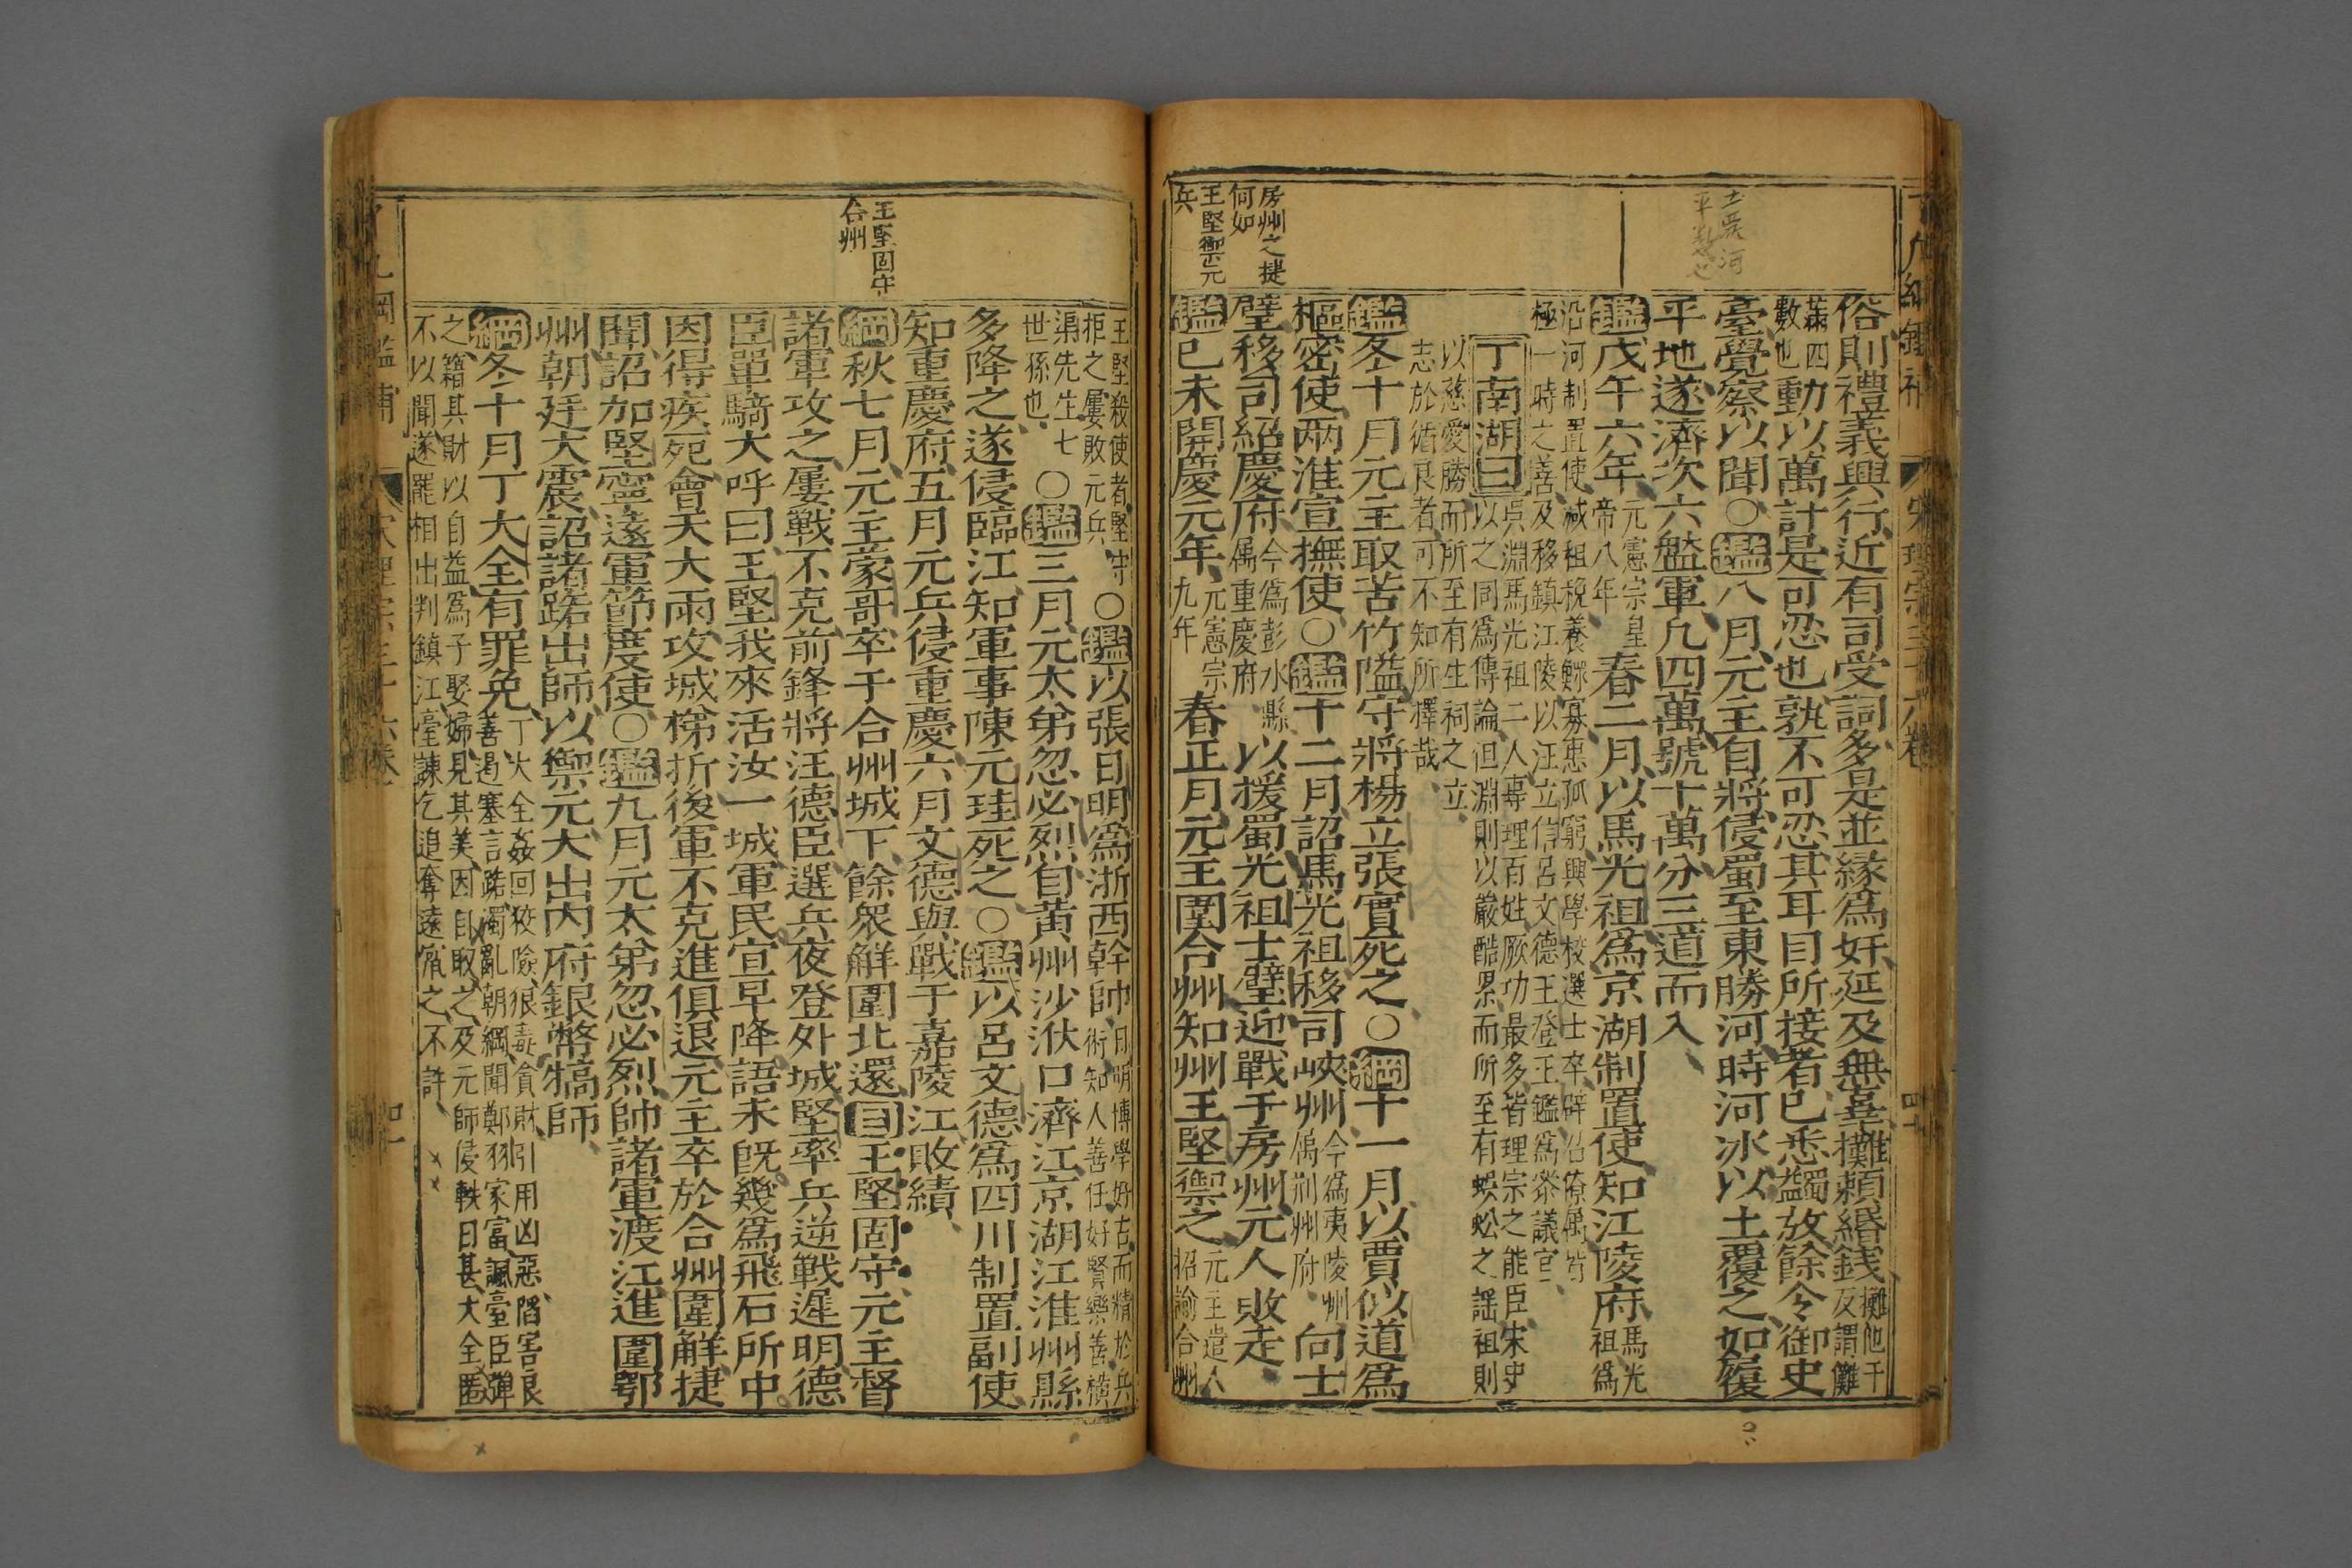 俗則禮義興行、近有司受詞多是並緣爲奸、延及無辜攤賴緡錢攤他干反謂儺
蒱四數也動以萬計是可忍也孰不可忍其耳目所接者已悉蠲放餘令御史
臺覺察以聞○鑑八月元主自將侵蜀至東勝河時河冰以土覆之如履
平地遂濟次六盤軍凡四萬號十萬分三道而入、
鑑戊午六年元憲宗皇帝八年春二月以馬光祖爲京湖制置使知江陵府馬光祖爲
沿河制置使、减租稅、養鰥寡、惠孤窮、興學校、選士卒、辟召僚属皆
極一時之善、及移鎮江陵、以汪立信呂文德王登王鑑爲叅議官、
丁南湖曰吳淵馬光祖二人專理百姓、厥功最多、皆理宗之能臣、宋史
以之同爲傳論、但淵則以嚴酷累、而所至有蜈蚣之謡、祖則
以慈愛勝、而所至有生祠之立、
志於循良者、可不知所擇哉、
鑑冬十月元主取苦竹隘守將楊立張實死之、○綱十一月以賈似道爲
樞密使、两淮宣撫使、○鑑十二月、詔馬光祖移司峽州今爲夷陵州属荆州府向士
璧移司紹慶府今爲彭水縣属重慶府以援蜀、光祖士璧迎戰于房州、元人敗走、
鑑己未開慶元年、元憲宗九年春正月、元主圍合州、知州王堅禦之元主遣人招諭合州
房州之捷何如
王堅禦元兵
王堅殺使者堅守
拒之屢敗元兵、○鑑以張日明爲浙西幹帥日明博學好古而精於兵術知人善任好賢樂善橫
渠先生七世孫也、○鑑三月元太弟忽必烈自黃州沙洑口濟江、京湖江淮州縣
多降之、遂侵臨江、知軍事陳元珪死之、○鑑以呂文德爲四川制置副使、
知重慶府、五月元兵侵重慶、六月文德與戰于嘉陵江敗績、
綱秋七月元主蒙哥卒于合州城下、餘衆解圍北還、目王堅固守、元主督
諸軍攻之、屢戰不克、前鋒將汪德臣選兵夜登外城、堅率兵逆戰、遲明德
臣單騎大呼曰、王堅我來活汝一城軍民、宜早降、語未旣、幾爲飛石所中
因得疾死、會天大雨、攻城梯折、後軍不克進、俱退、元主卒於合州圍解捷
聞、詔加堅寧遠軍節度使、○鑑九月元太弟忽必烈帥諸軍渡江、進圍鄂
州、朝廷大震、詔諸路出師、以禦元、大出內府銀幣犒師、
綱冬十月丁大全有罪免、丁大全姦回狡險、狠毒貪財、引用凶惡、陷害良善、遏塞言路、濁亂朝綱、聞鄭羽家富、諷臺臣彈
之、籍其財以自益、爲子娶婦、見其美、因自取之、及元師侵軼日甚、大全匿
不以聞、遂罷相出判鎮江、臺諫乞追奪遠竄之、不許、
王堅固守合州